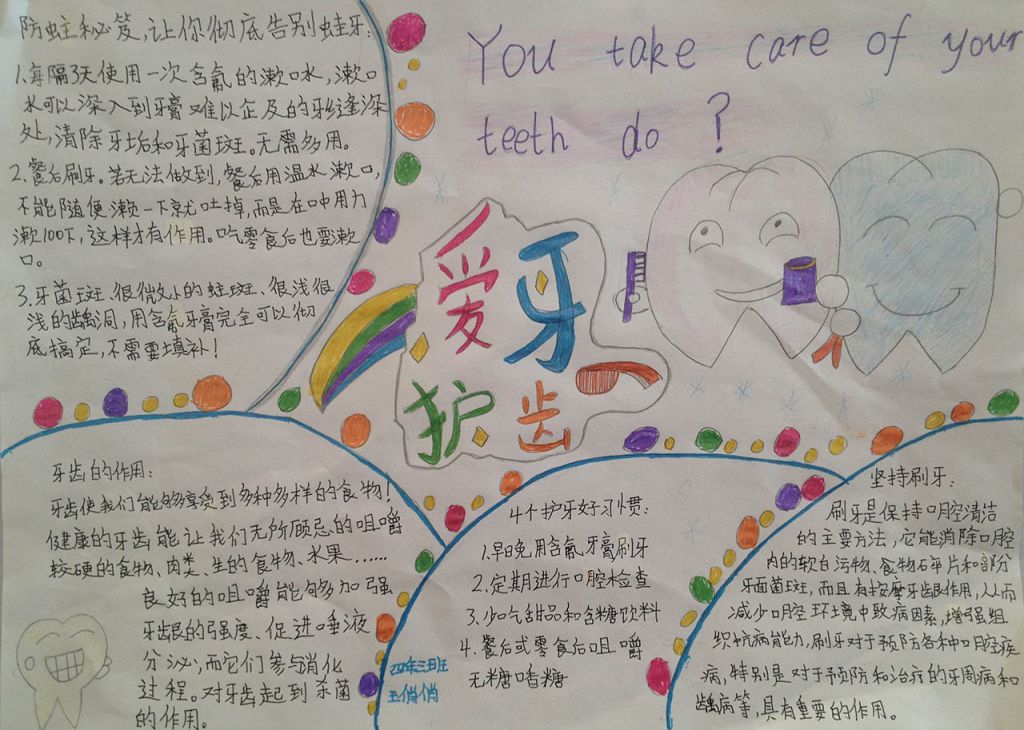 防蛀秘笈,让你彻底告别蛀牙:
1.每隔3天使用一次含氟的漱口水,漱口
水可以深入到牙膏难以企及的牙缝深
处,清除牙垢和牙菌斑。无需多用。
2.餐后刷牙。若无法做到,餐后用温水漱口,
不能随便漱一下就吐掉,而是在口中用力
漱100下,这样才有作用。吃零食后也要漱
口。
3.牙菌斑、很微小的蛀斑、很浅很
浅的龋洞,用含氟牙膏完全可以彻
底搞定,不需要填补!
You take care of your
teeth do ?
爱牙
护齿
牙齿的作用:
牙齿使我们能够享受到多种多样的食物!
健康的牙齿能让我们无所顾忌的咀嚼
较硬的食物、肉类、生的食物、水果……
良好的咀嚼能够加强
牙龈的强度、促进唾液
分泌,而它们参与消化
过程。对牙齿起到杀菌
的作用。
4个护牙好习惯:
1.早晚用含氟牙膏刷牙
2.定期进行口腔检查
3.少吃甜品和含糖饮料
4.餐后或零食后咀嚼
无糖口香糖
四年三班
王俏俏
坚持刷牙:
刷牙是保持口腔清洁
的主要方法,它能消除口腔
内的软白污物、食物碎片和部分
牙面菌斑,而且有按摩牙龈作用,从而
减少口腔环境中致病因素,增强组
织抗病能力,刷牙对于预防各种口腔疾
病,特别是对于预防和治疗的牙周病和
龋病等,具有重要的作用。